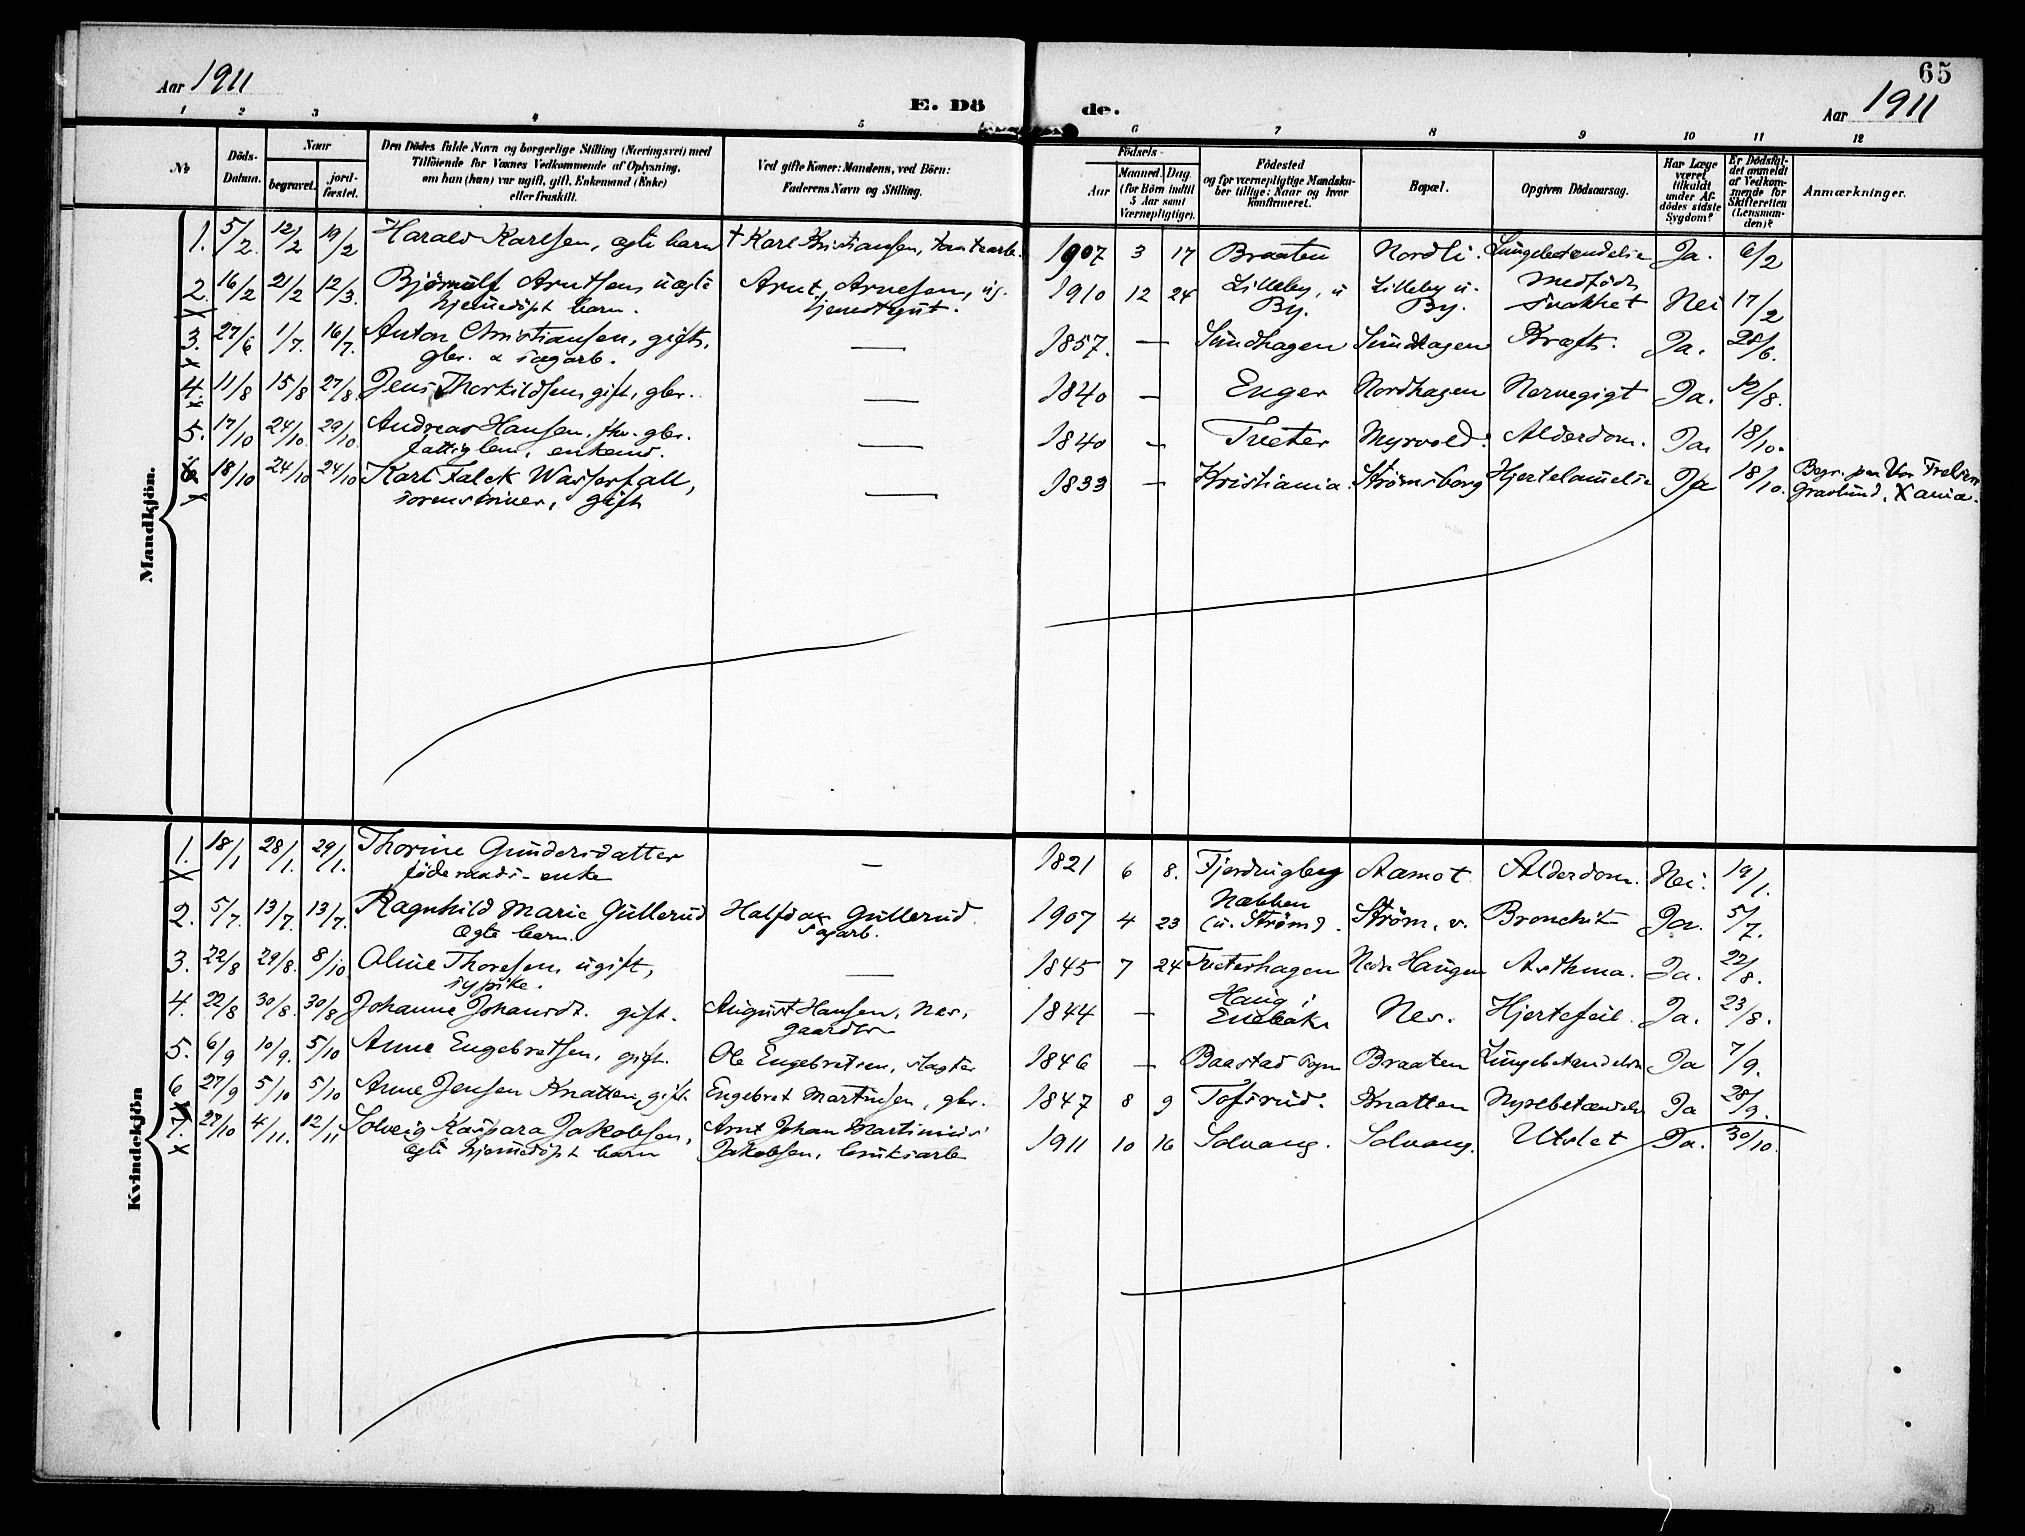 65
Aar 1911
E. Dö de.
Aar 1911
1 2 3 4 5 6 7 8 9 10 11 12
No
Döds-Datum.
Naar
begravet.
jord-fæstet.
Den Dödes fulde Navn og borgerlige Stilling (Næringsvei) med
Tilföiende for Voxnes Vedkommende af Oplysning,
om han (hun) var ugift, gift, Enkemand (Enke)
eller fraskilt.
Ved gifte Koner: Mandens, ved Börn:
Faderens Navn og Stilling.
Födsels-
Aar
Maaned. Dag.
(for Börn indtil
5 Aar samt
Værnepligtige).
Födested
og for værnepligtige Mandskaber tillige: Naar og hvor
konfirmeret.
Bopæl.
Opgiven Dödsaarsag.
Har Læge
været
tilkaldt
under Afdödes sidste
Sygdom?
Er Dödsfaldet anmeldt
af Vedkommende for
Skifteretten
(Lensmanden)?
Anmærkninger.
Mandkjön.
1. 5/2 12/2 19/2 Harald Karlsen, ægte barn † Karl Kristiansen, tomtearb. 1907 3 17 Braaten Nordli. Lungebetændelse Ja. 6/2
2. 16/2 21/2 12/3. Bjørnulf Arntsen, uægte Arnt Arnesen, ug. 1910 12 24 Lilleby, u. Lilleby u. Medfödt
hjemedöpt barn. tjenestgut. By. By. svakhet Nei 17/2
3. 27/6 1/7. 16/7. Anton Christiansen, gift, — 1857. — Sundhagen Sundhagen Kræft. Ja. 28/6.
gbr. & sagarb.
4. 11/8 15/8 27/8. Jens Thorkildsen, gift, gbr. — 1840 — Enger Nordhagen Nervegigt Ja. 12/8.
5. 17/10 24/10. 29/10 Andreas Hansen, fhv. gbr. — 1840 — Tveter Myrvold. Alderdom. Ja. 18/10.
fattiglem, enkem.
6 18/10 24/10 24/10 Karl Falck Wasserfall, — 1833 — Kristiania. Strömsborg Hjertelamelse Ja 18/10. Begr. paa Vor Frelsers
sorenskriver, gift Gravlund, Xania.
Kvindekjön
1. 18/1 28/1. 29/1. Thorine Gundersdatter — 1821 6 8. Fjerdingbøg Aamot Alderdom. Nei. 19/1.
föderaads-enke
2. 5/7. 13/7. 13/7. Ragnhild Marie Gullerud Halfdan Gullerud 1907 4 23 Nabben Ström, v. Bronchit Ja. 5/7.
ægte barn. sagarb. (u. Ström).
3. 22/8 29/8. 8/10 Oline Thoresen, ugift, — 1845 7 24 Tveterhagen Nedre Haugen Asthma. Ja. 22/8.
sypike.
4. 22/8 30/8. 30/8 Johanne Johansdt. gift. August Hansen, Nes, 1844 — Haug i Nes. Hjertefeil. Ja. 23/8.
gaardbr. Enebak
5. 6/9 10/9. 5/10 Anne Engebretsen, gift. Ole Engebretsen, slagter 1846 — Baastad sogn Braaten Lungebetændelse Ja 7/9.
6 27/9 5/10 5/10 Anne Jensen Knatten, gift. Engebret Martinsen, gbr. 1847 8 9 Tofsrud. Knatten Nyrebetændelse Ja 28/9.
7. 27/10 4/11. 12/11 Solveig Kaspara Jakobsen, Arnt Johan Martinius 1911 10 16 Solvang. Solvang. Utslet Ja. 30/10.
ægte hjemedöpt barn Jakobsen, bruksarb